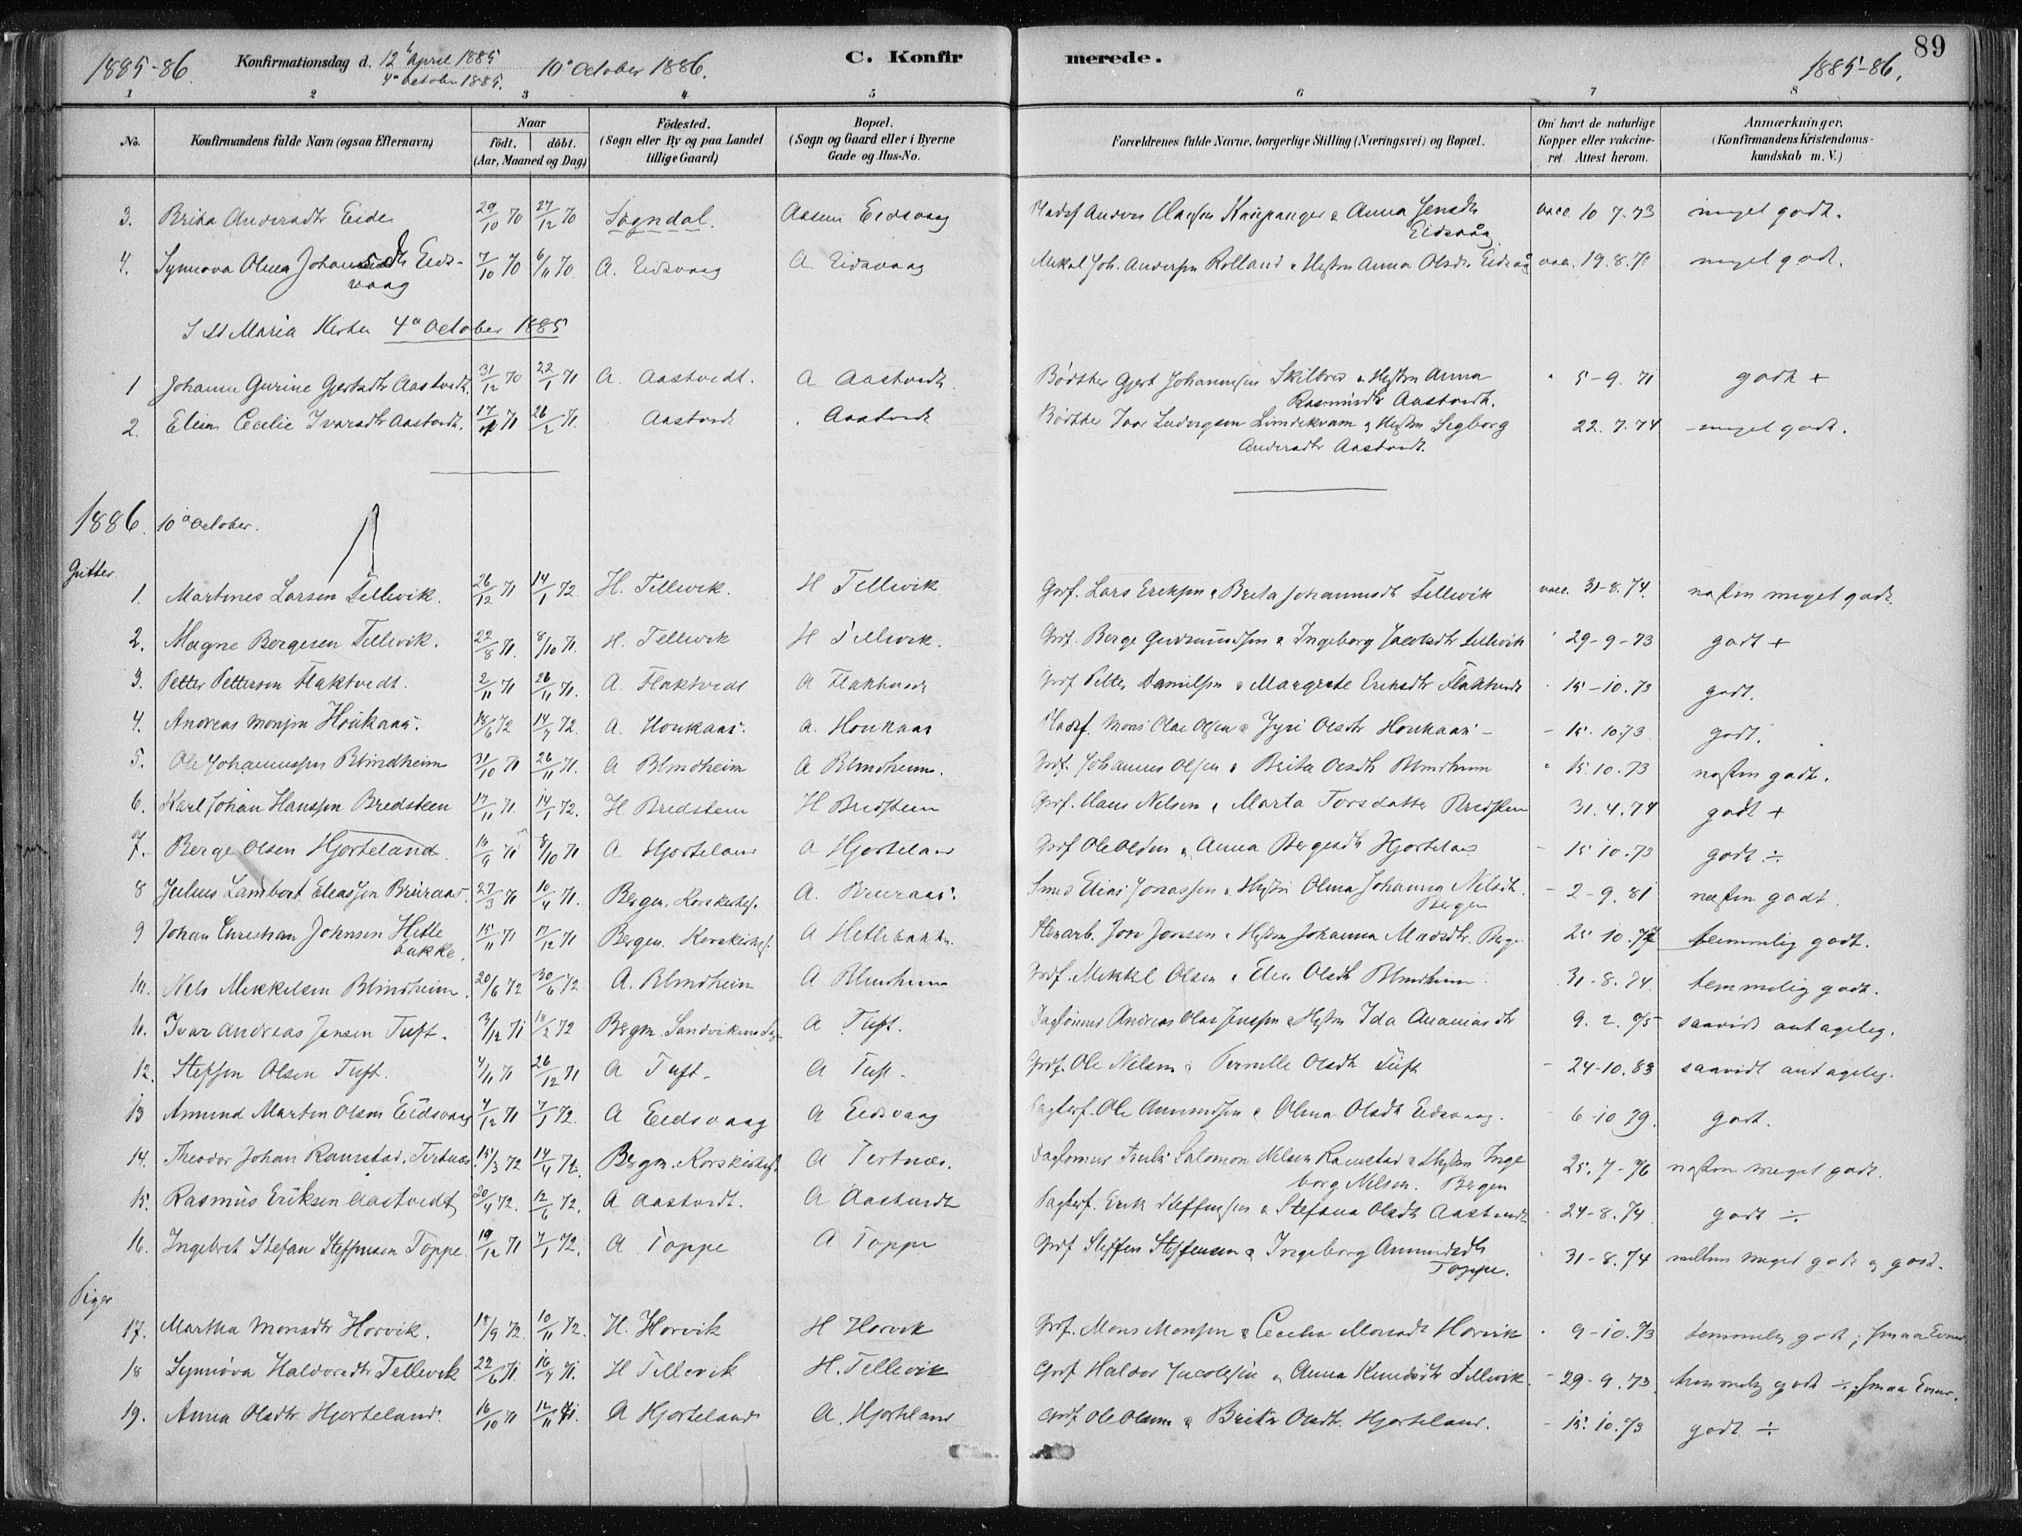 1885-86. Konfirmationsdag d. 12 April 1885 10de October 1886. C. Konfirmerede. 1885-86. 89
4de October 1885.
1 2 3 4 5 6 7 8
No. Konfirmandens fulde Navn (ogsaa Efternavn) Naar født. døbt. (Aar, Maaned og Dag) Fødested. (Sogn eller By og paa Landet tillige Gaard) Bopæl. (Sogn og Gaard eller i Byerne Gade og Hus-No. Forældrenes fulde Navne, borgerlige Stilling (Næringsvei) og Bopæl. Om havt de naturlige Kopper eller vakcineret. Attest herom. Anmærkninger. (Konfirmandens Kristendomskundskab m. V.)
3. Brita Andersdtr Eide 29/10 70 27/12 70 Sogndal. Aasene Eidsvaag Anders Olaisen Kaupanger & Anna Jensdtr Eidsvaag vacc. 10 7.73 meget godt.
4. Synnova Olina Johansdtr Eidsvaag 7/10 70 6/11 70. A. Eidsvaag A Eidsvaag Joh. Andersen Rolland & Hustru Anna Olsdtr Eidsvaag vacc. 19.8.71 meget godt.
I St Maria Kirke 4de October 1885
1 Johanne Gurine Gjertsdtr Aastvedt. 31/12 70 22/1 71 A. Aastvedt. A Aastvedt. Bødtker Gjert Johannesen Skiltves & Hustru Anna Rasmusdtr Aastvedt. " 5-9. 71 godt +
2. Elisa Cecilie Ivarsdtr Aastvedt. 17/1 71 26/2 71. Aastvedt Aastvedt Bødtker Ivar Ludvigsen Lindekvam & Hustru Segborg Andersdtr Aastvedt. 22.7.74 meget godt.
1886. 10de October.
Gutter.
1. Martines Larsen Tellevik. 26/12 71 14/1 72 H. Tellevik. H Tellevik Grdf. Lars Eriksen & Brita Johannesdtr Tellevik vacc. 31-8.74. næsten meget godt.
2. Magne Bergesen Tellevik. 22/8 71. 8/10 71. H. Tellevik H Tellevik. Grdf. Berge Gudmundsen & Ingeborg Jacobsdtr Tellevik " 29-9-73 godt +
3. Petter Petterson Flaktvedt. 2/11 71 26/11 71. A. Flaktvedt A Flaktvedt Grdf Petter Danielsen & Margrete Eriksdtr Flaktvedt " 15-10.73 godt.
4. Andreas Monsen Houkaas. 18/6 72 14/7 72. A. Houkaas. A. Houkaas Mons Olai Olsen & Jyri Olsdtr Houkaas - 15.10.73 godt.
5. Ole Johannessen Blindheim 31/10 71 26/11 71. A Blindheim A Blindheim. Grdf. Johannes Olsen & Brita Olsdtr Blindheim " 15.10.73 næsten godt.
6. Karl Johan Hanssen Bredsteen 17/11 71. 14/1 72. H. Bredsteen H Bredsteen Grdf. Hans Nelsen & Marta Torsdatter Bredsteen 31.4.74 godt +
7. Berge Olsen Hjorteland. 14/9 71 8/10 71 A Hjorteland A Hjorteland Grdf Ole Olsen & Anna Bergesdtr Hjorteland - 15 10.73 godt ÷
8 Julius Lambert Eliassen Bruraas. 27/3 71 10/4 71. Bergen. Korskirkes. A. Bruraas. Smed Elias Jonassen & Hustru Olina Johanna Nilsdtr. Bergen - 2-9.81 næsten godt.
9 Johan Christian Johnsen Hetlebakke. 15/11 71 17/12 71 Bergen. Korskirkes. A Hetlebakke. Stenarb. Jon Jonsen & Hustru Johanna Madsdtr. Bergen 25 10.77 temmelig godt.
10. Nels Mikkelsen Blindheim. 20/6 72 30/6 72 A. Blindheim A Blindheim Grdf. Mikkel Olsen & Elen Olsdtr Blindheim. 31-8.74. temmelig godt.
11. Ivar Andreas Jensen Tuft. 3/12 71 10/2 72 Bergen. Sandvikens A Tuft. Dagløner Andreas Olai Jensen & Hustru Ida Ananiasdtr 9.2.75 saavidt antagelig.
12. Steffen Olsen Tuft. 4/11 71 26/12 71 A Tuft. A Tuft. Grdf. Ole Nelsen & Pernille Olsdtr Tuft - 24-10.83 saavidt antagelig.
13 Amund Martin Olsen Eidsvaag 4/12 71 7/1 72. A Eidsvaag A Eidsvaag Ole Amundsen & Olina Olsdtr Eidsvaag. - 6-10 79. godt.
14. Theodor Johan Ramstad. Tertnæs. 15/3 72 14/4 72. Bergen. Korskirkes. A Tertnæs. Dagløner Salomon Nilsen Ramstad & Hustru Ingeborg Nelsen. Bergen 25.7-76 næsten meget godt.
15. Rasmus Eriksen Aastvedt 20/4 72. 12/6 72. A Aastvedt. A Aastvedt Erik Steffensen & Stefana Olsdtr Aastvedt - 24-8.74 godt ÷.
16. Ingebret Stefan Steffensen Toppe. 19/12 71 7/1 72. A Toppe A Toppe Grdf Steffen Steffensen & Ingeborg Amundsdtr Toppe. " 31-8.74 mellem meget godt og godt.
Piger
17. Martha Monsdtr Horvik. 18/9 72. 10/11 72. H. Horvik H Horvik Grdf. Mons Monsen & Cecilia Monsdtr Horvik " 9-10.73 temmelig godt; smaa Evner
18 Synnøva Haldorsdtr Tellevik 22/6 71. 16/7 71. H Tellevik H. Tellevik Grdf Haldor Jacobsen & Anna Knudsdtr Tellevik. - 29-9.73. temmelig godt ÷. smaa Evner.
19. Anna Olsdtr Hjorteland. 16/10 71 12/11 71. A Hjorteland A. Hjorteland Grdf Ole Olsen & Brita Olsdtr. Hjorteland. - 15.10.73 godt ÷